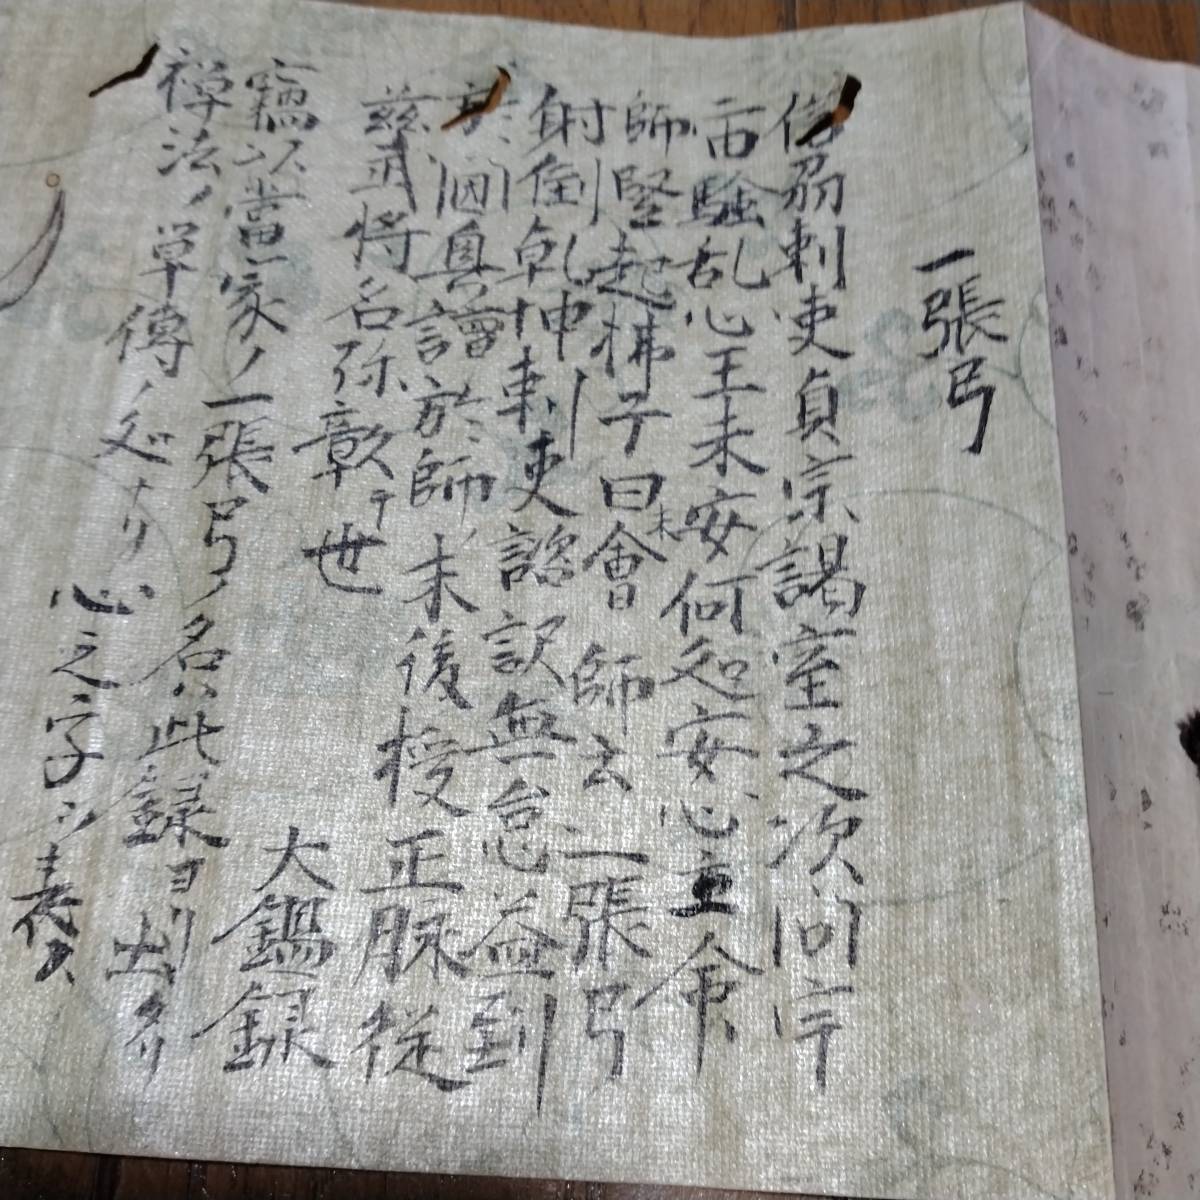 一張弓
信刕刺吏貞宗謁室之次問宇
宙騒乱心王未安何処安心立命
師竪起拂子曰會未師云一張弓
射倒乾坤刺吏諮訳無怠益到
於洄真證於師末後授正脉従
茲武将名弥彰于世
大鍋録
竊以當家ノ一張弓ノ名ハ此録ヨリ出タリ
禅法ノ草傳ノ処ナリ心之字ヲ表ス